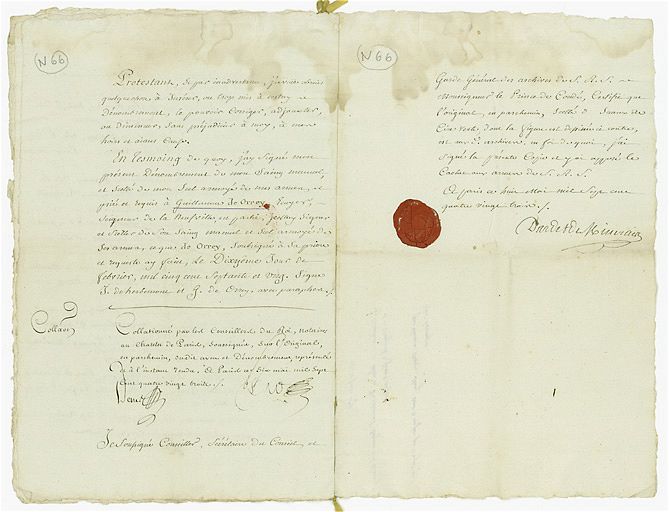 N66
Protestant, si par inadvertence, j'avais obmis
quelquechose à Insérer, ou trop mis à cestuy
Dénombrement, le pouvoir Corriger, adjouxter,
ou diminuer, sans préjudice à moy, à mes
hoirs et aians Cause.
En Tesmoing de quoy, j'ay Signé mon
présent Dénombrement de mon Saing manuel,
et Scellé de mon Scel armoyé de mes armes, et
prié et requis à Guillaume de Orcey, Escuyer,
Seigneur de la Neufville en partie,
et Sceller de son Saing manuel et Scel armoyé de
Ses armes, ce que de Orcey, Soubsigné à Sa prière
et requeste ay faict, Le Dixyéme Jour de
febvrier, mil cinq cent Septante et Ung. Signé
J. de herbemont et G. de Orcey, avec paraphes ./.
Collaõn
Collationné par les Conseillers du Roi, notaires
au Chatelet de Paris, Soussignés, Sur l'Original,
en parchemin, dudit aveu et Dénombrement, représenté
et à l'instant rendu. à Paris ce dix mai mil Sept
cent quatre vingt trois ./.
Je Soussigné Conseiller, Secrétaire du Conseil et
N66
Garde Général des archives de S. A. S.
Monseigneur le Prince de Condé, Certifie que
l'original, en parchemin, Scellé d'un Sceau de
Cire verte, dont la figure est dépeinte cy contre,
est aux archives, en foi de quoi, j'ai
Signé la présente Copie et y ai apposé le
Cachet aux armes de S. A. S.
à Paris ce huit Mai mil Sept cent
quatre vingt trois ./.